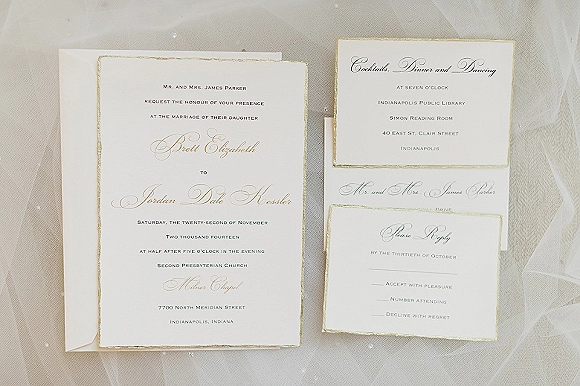 Mr. and Mrs. James Parker
request the honour of your presence
at the marriage of their daughter
Brett Elizabeth
to
Jordan Dale Kessler
Saturday, the twenty-second of November
Two thousand fourteen
at half after five o'clock in the evening
Second Presbyterian Church
Milner Chapel
7700 North Meridian Street
Indianapolis, Indiana
Cocktails, Dinner and Dancing
at seven o'clock
Indianapolis Public Library
Simon Reading Room
40 East St. Clair Street
Indianapolis
Mr. and Mrs. James Parker
Please Reply
by the thirtieth of October
Accept with pleasure
Number attending
Decline with regret